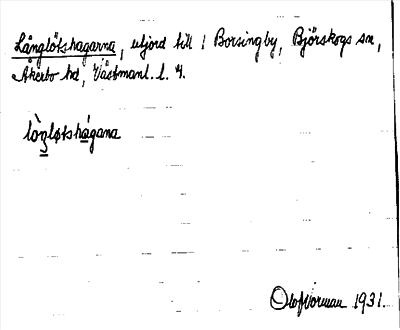 Långlötshagarna, utjord till 1 Borsingby, Björskogs sn,
Åkerbo hd, Västmanl. l. 4.
lòŋløtshagana
Olof Norman 1931.